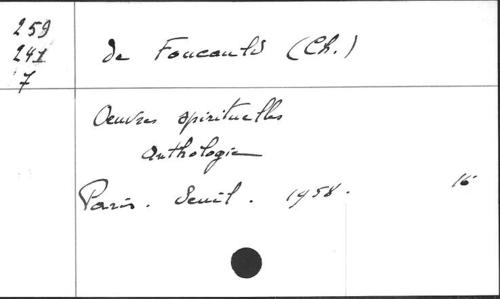 259
241
7
de Foucauld (Ch.)
Oeuvres spirituelles
Anthologie
Paris. Seuil. 1958.
16